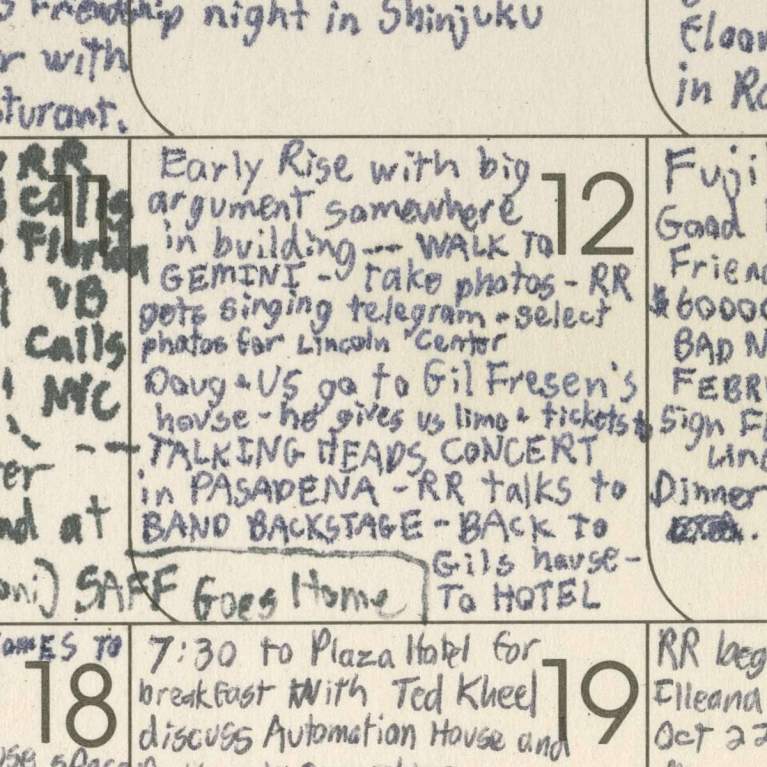 night in Shinjuku
with
sturant.
in
11
RR
Calls
Florida
VB
Calls
NYC
at
SAFF Goes Home
12
Early Rise with big
argument somewhere
in building --- WALK TO
GEMINI - Take photos - RR
gets singing telegram - select
photos for Lincoln Center
Doug + US go to Gil Fresen's
house - he gives us limo + tickets to
TALKING HEADS CONCERT
in PASADENA - RR talks to
BAND BACKSTAGE - BACK TO
Gils house -
TO HOTEL
Fuji
Good
$60000
BAD
Sign
Dinner
18
COMES TO
19
7:30 to Plaza Hotel for
breakfast With Ted Kheel
discuss Automation House and
RR
Illeana
Oct 22